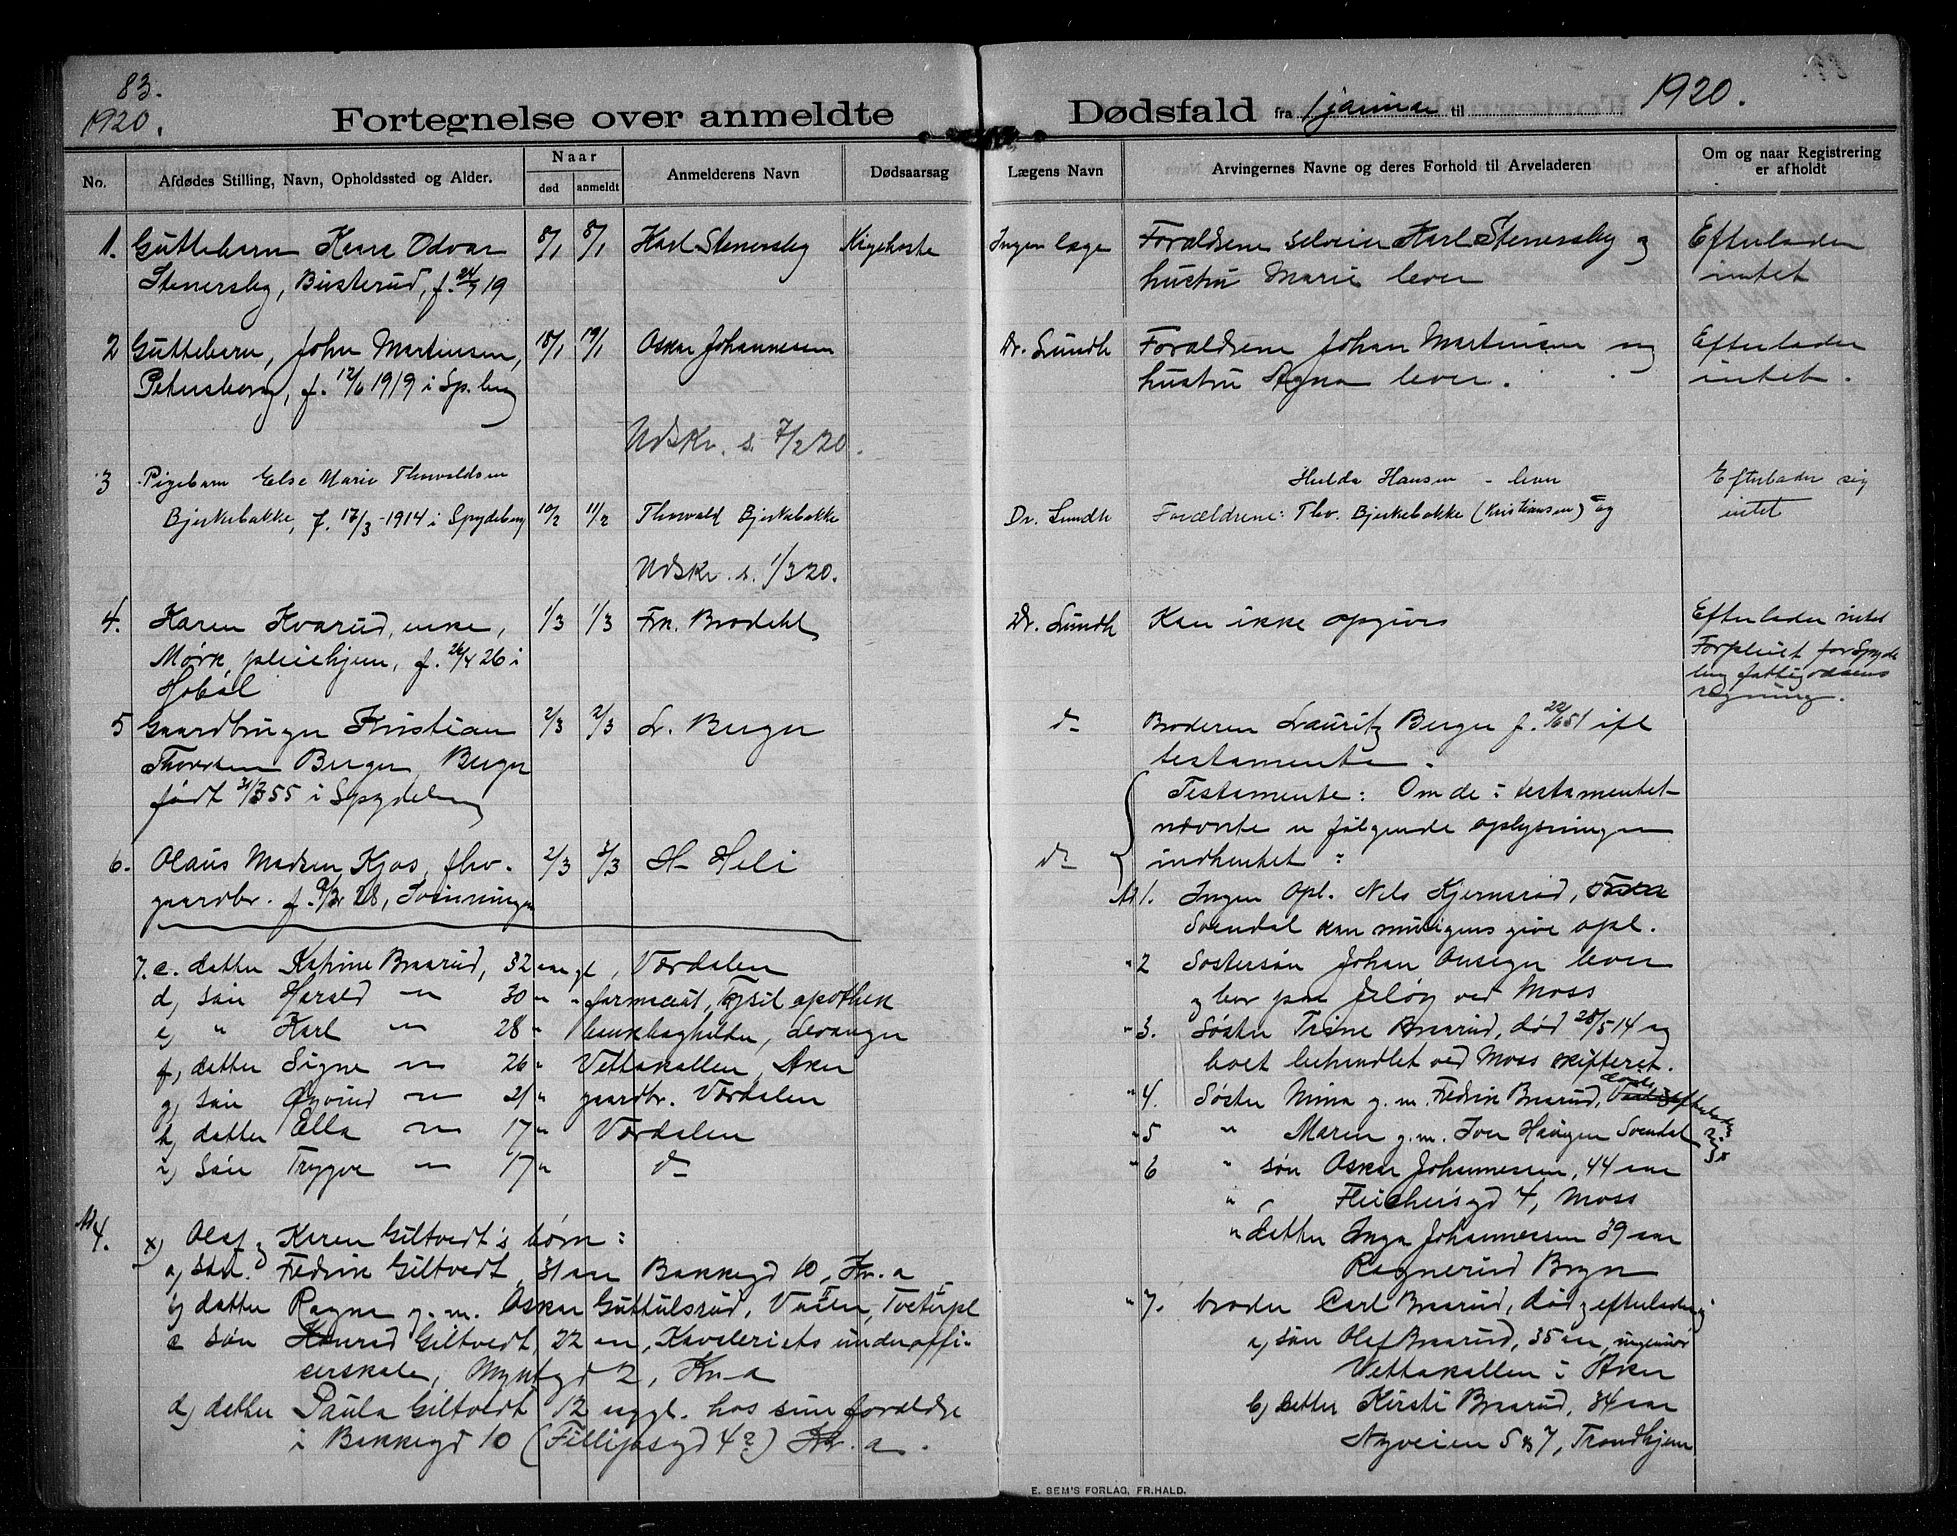 83.
1920.
Fortegnelse over anmeldte
Dødsfald fra 1 januar til
1920.
No.
Afdødes Stilling, Navn, Opholdssted og Alder.
Naar
død
anmeldt
Anmelderens Navn
Dødsaarsag
Lægens Navn
Arvingernes Navne og deres Forhold til Arveladeren
Om og naar Registrering
er afholdt
1. Guttebarn Kaare Odvar 8/1 8/1 Karl Stenersby Kigehoste Ingen læge Forældrene selveier Karl Stenersby og Efterlader
Stenersby, Busterud, f. 24/9 19 hustru Marie lever intet
2 Guttebarn, John Martinsen, 18/1 19/1 Oskar Johannessen Dr. Lundh Forældrene Johan Martinsen og Efterlader
Petersborg, f. 12/6 1919 i Sp.berg hustru Agna lever. intet.
Udskr. s. 7/2 20.
3 Pigebarn Else Marie Thorvaldsen Hulda Hansen - lever Efterlader sig
Bjerkebakke, f. 17/3-1914 i Spydeberg 10/2 11/2 Thorvald Bjerkebakke Dr. Lundh Forældrene: Thv. Bjerkebakke (Kristiansen) og intet
Udskr. s. 1/3 20.
4. Karen Kvarud, enke, 1/3 1/3 Frk. Brodahl Dr. Lundh Kan ikke opgives Efterlader intet
Mørk pleiehjem, f. 26/4 26 i Forpleiet for Spyde
Hobøl berg fattigvæsens
regning.
5 Gaardbruger Kristian 2/3 2/3 L. Berger do Broderen Lauritz Berger f. 22/6 51 ifl
Thoresen Berger, Berger testamente.
født 31/3 55 i Spydeberg Testamente: Om de i testamentet
nævnte er følgende oplysninger
6. Olaus Madsen Kjos, fhv. 2/3 3/3 H. Heli do indhentet:
gaardbr. f. 28, Svinningen No 1. Ingen opl. Nels Kjernsrød,
Svendal kan muligens give opl.
7. c. datter Katrine Braarud, 32 aar gl, Værdalen
d) søn Harald " 30 " farmaceut, Trysil apothek
e) " Karl " 28 " bankbogholder, Levanger
f) datter Signe " 26 " Vettakollen, Aker
g) søn Øyvind " 21 " gaardbr. Værdalen
h) datter Ella " 17 " Værdalen
i) søn Trygve " 17 " do
"2 Søstersøn Johan Ansegn lever
og bor paa Jeløy ved Moss
"3. Søster Trine Braarud, død 28/5 14 og
boet behandlet ved Moss skifteret.
"4. Søster Mina g.m. Fredrik Braarud,
"5 " Maren g.m. Iver Haugen Svendal
"6 " søn Oskar Johannessen, 44 aar
" Fleichersgd 4, Moss
" datter Inga Johannessen 39 aar
Ragnerud Bryn
"7. broder Carl Braarud, død, efterlader sig
a, søn Olaf Braarud, 35 aar, ingeniør
Vettakollen i Aker
b, datter Kirsti Braarud, 34 aar
Nyveien 5 & 7, Trondhjem
No 4.
x) Olaf og Karen Giltvedt's børn:
a, søn. Fredrik Giltvedt, 31 aar Bakkegd 10, Kr.a
b) datter Ragna g.m. Oskar Guttulsrud, Tveterpl
c søn Konrad Giltvedt, 22 aar, Kavaleriets underoffi-
cerskole, Myntgd 2, Kr.a
d) datter Paula Giltvedt 12 aar gl. hos sine forældre
i Bakkegd 10 (Fillipsgd 4?) Kr.a.
E. SEM'S FORLAG, FR.HALD.